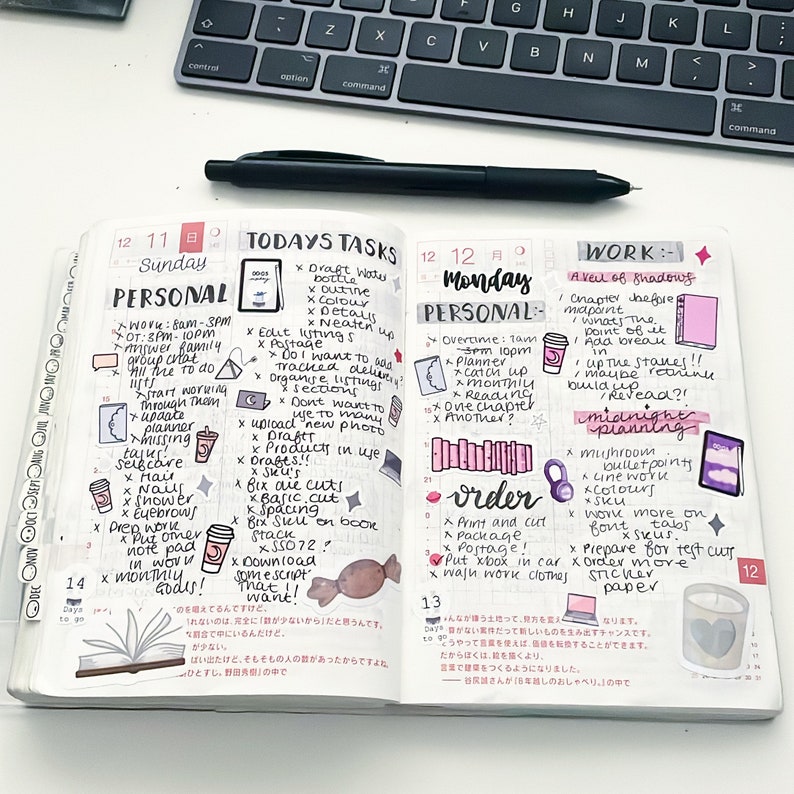 Z
X
C
V
B
N
M
G
H
J
K
L
control
option
⌘
command
⌘
command
12 11 日
Sunday
PERSONAL
x Work: 8am-3PM
x OT: 3PM-10PM
x Answer family
group chat
x All the to do
lists
x start working
through them
x update
planner
x missing
tasks!
selfcare
x Hair
x Nails
x shower
x Eyebrows
x Prep work
x Put other
note pad
in work
x monthly
goals!
14
Days
to go
TODAYS TASKS
x Draft water
bottle
x outline
x colour
x Details
x Neaten up
x Edit listings
x Postage
x Do I want to add
tracked delivery?
x Organise listings
x sections
x Dont want to
use to many
x upload new photo
x Drafts
x Products in use
x Drafts!!
x SKU's
x Fix die cuts
x Basic cut
x spacing
x Fix SKU on book
stack
x SS072?
x Download
some script
That I
want!
のを唱えてるんですけど、
れないのは、完全に「数が少ないから」だと思うんです。
な割合で中にいるんだけど、
が少ない。
ぱい出たけど、そもそもの人の数があったからですよね。
ひとすじ。野田秀樹」の中で
12 12 月
Monday
PERSONAL:-
x Overtime: 7am
3pm 10pm
x Planner
x catch up
x monthly
x Reading
x One chapter
x Another?
order
x Print and cut
x Package
x Postage!
Put xbox in car
x wash work clothes
13
Days
to go
WORK:-
A veil of shadows
! Chapter before
midpoint
! Whats the
point of it
! Add break
in
! up the stakes!!
! maybe rethink
build up
! Reread?!
midnight
planning
x mushroom
bulletpoints
x Linework
x Colours
x SKU
x Work more on
font tabs
x SKUs.
x Prepare for test cuts
x Order more
sticker
paper
12
みんなが嫌う土地って、見方を変え なります。
算がない案件だって新しいものを生み出すチャンスです。
どうやって言葉を使えば、価値を転換することができます。
だからぼくは、絵を描くより、
言葉で建築をつくるようになりました。
—— 谷尻誠さんが『8年越しのおしゃべり。』の中で
MAR
APR
MAY
JUN
JUL
AUG
SEPT
OCT
NOV
DEC